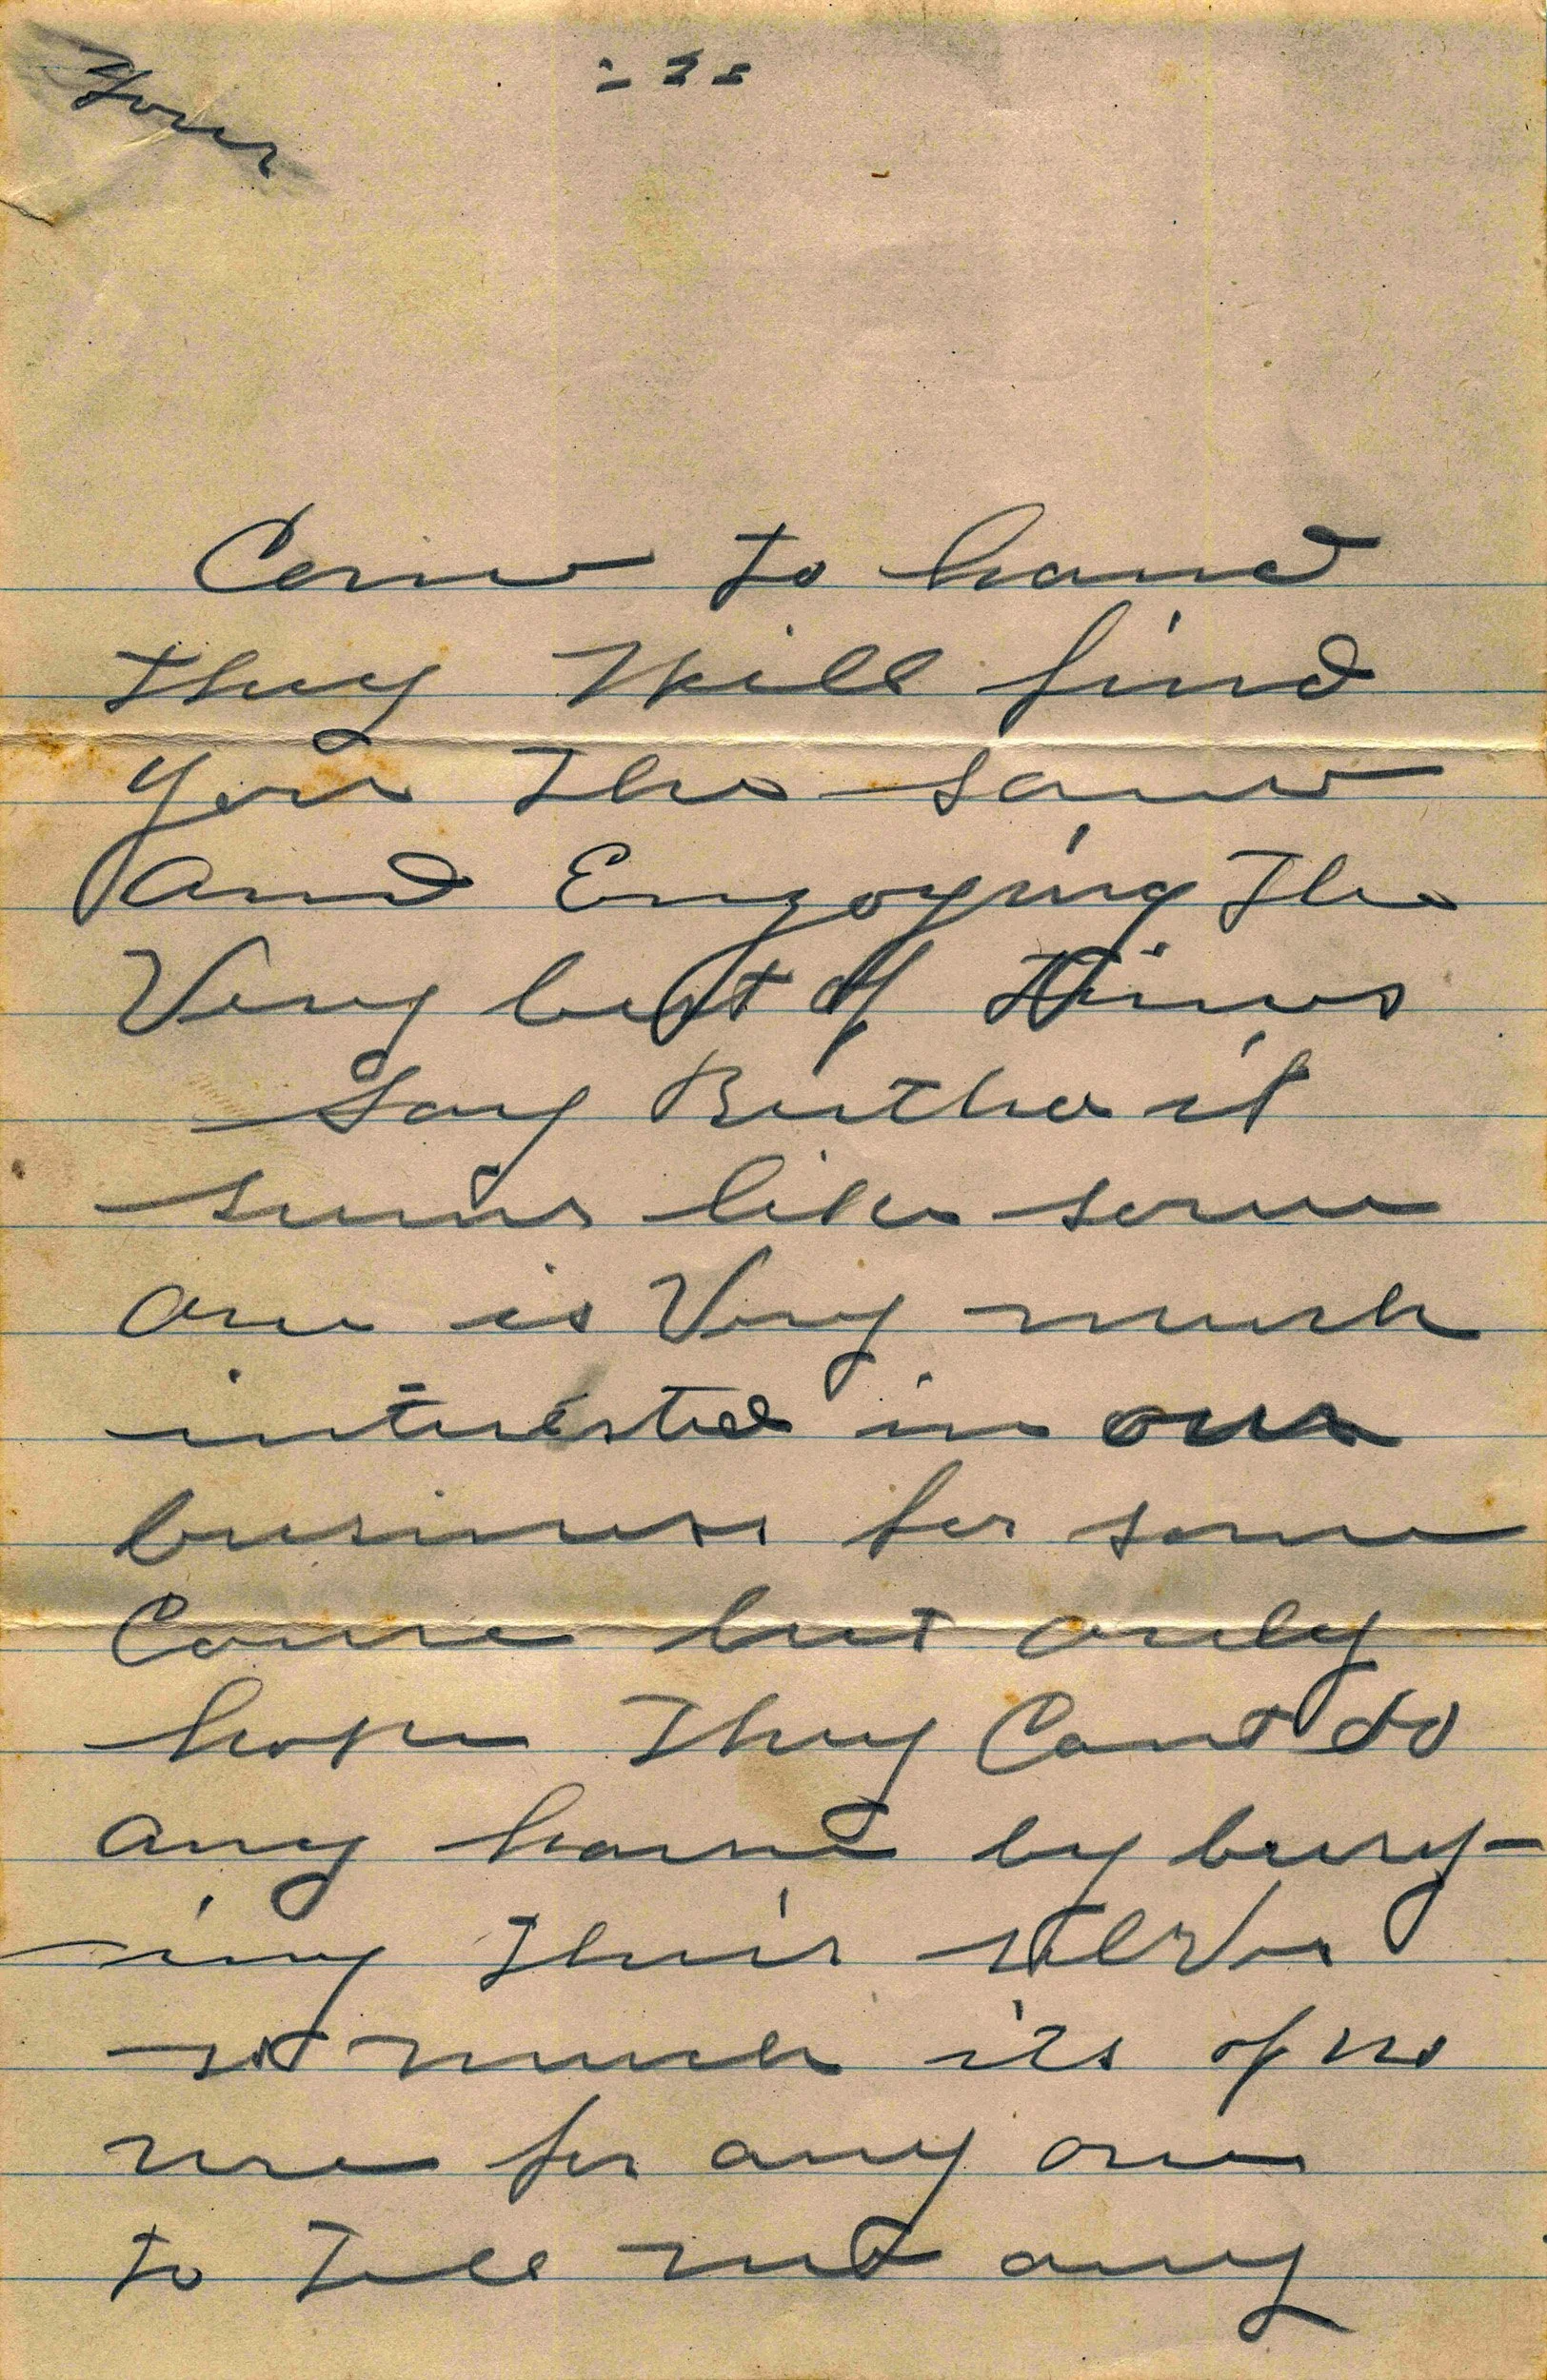 Your
- 2 -
Come to hand
they Will find
you the same
and Enjoying the
Very best of times
Say Bertha it
seems like some
one is Very much
interested in our
business for some
Cause but only
hope They Cant do
any harm by busy-
ing their selves
so much its of no
use for any one
to Tell me any